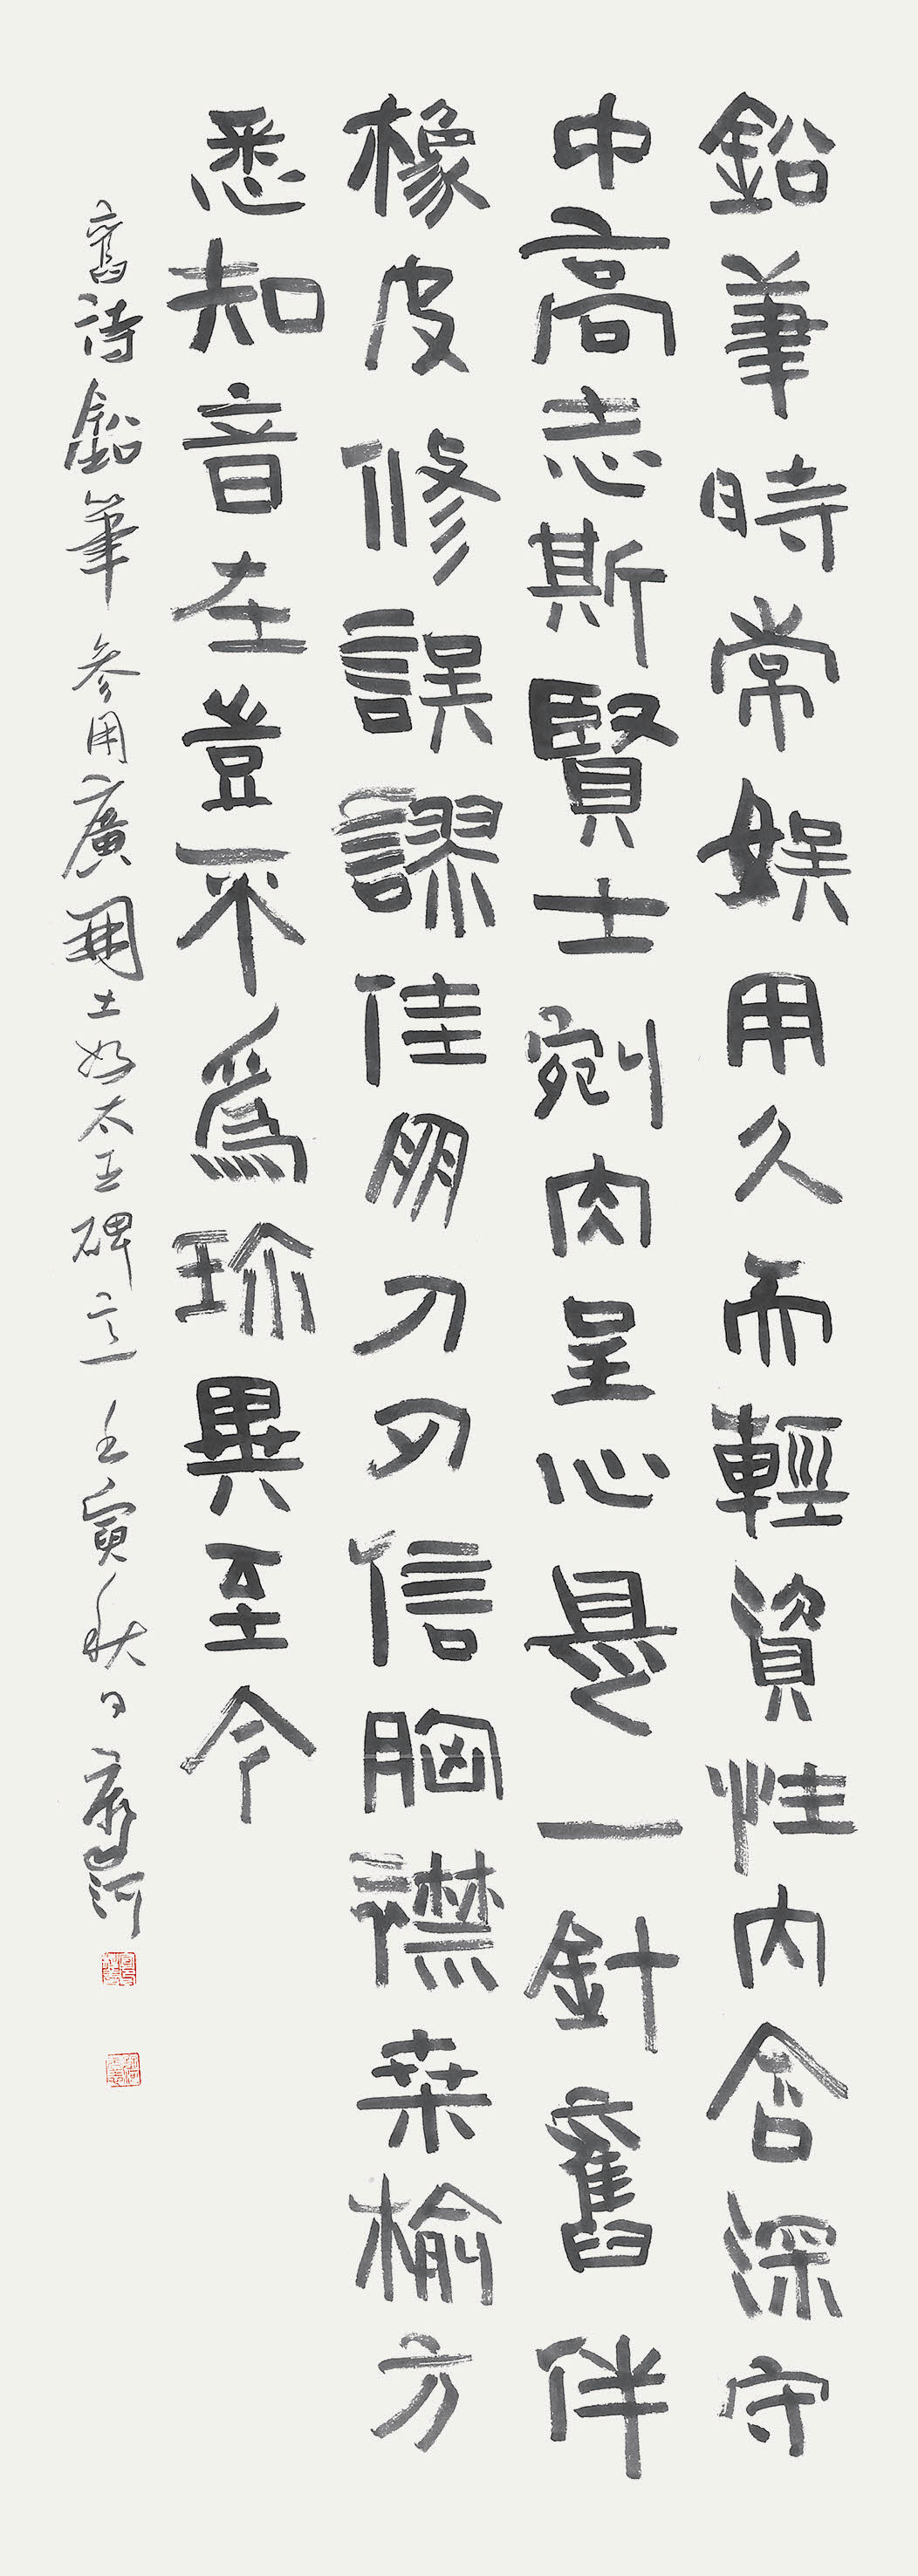 鉛筆時常娛用久而輕資性內含深守
中高志斯賢士剜肉呈心是一針舊伴
橡皮修誤謬佳朋刀刃信胸襟桑榆方
悉知音在豈不爲珍異至今
舊詩鉛筆參用廣開土好太王碑 壬寅秋日